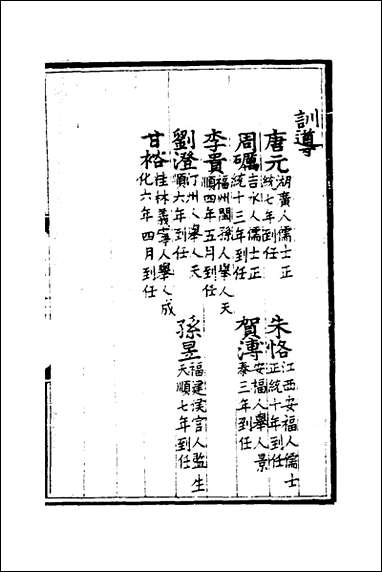 訓導
唐元湖廣人儒士正統七年到任
朱恪江西安福人儒士正統十年到任
周礪吉水人儒士正統十三年到任
賀溥安福人舉人景泰三年到任
李貴福州閩孫人舉人天順四年五月到任
劉澄汀州人舉人天順六年到任
孫昱福建侯官人監生天順七年到任
甘裕桂林義寧人舉人成化六年四月到任